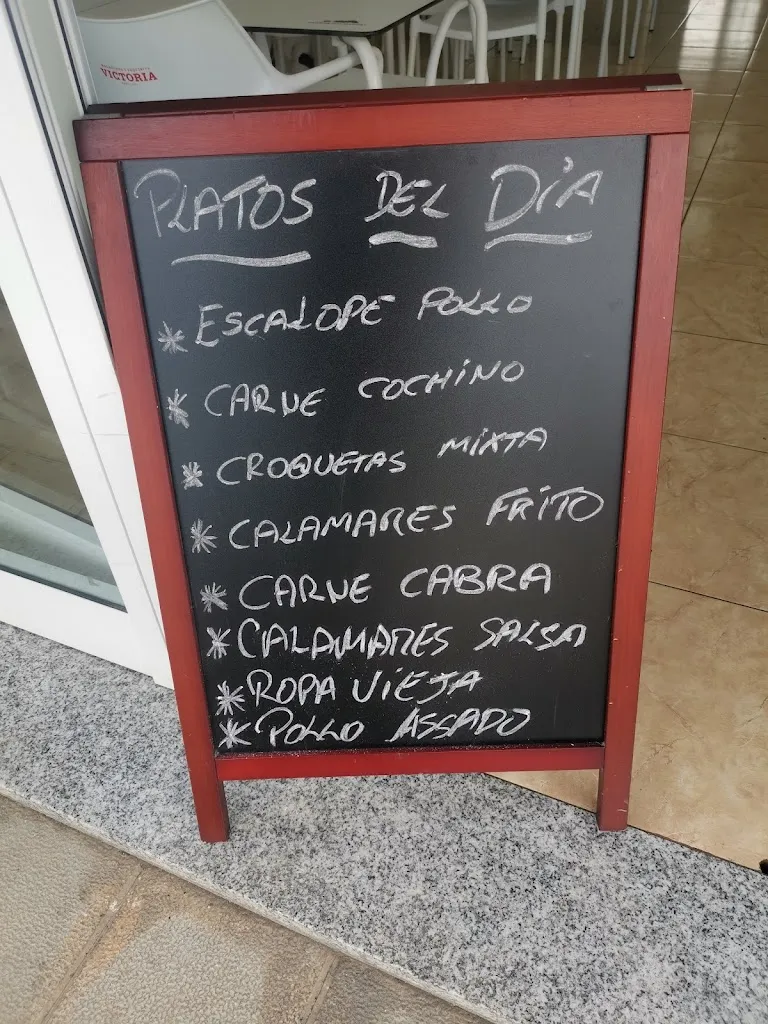 VICTORIA
PLATOS DEL DÍA
* ESCALOPE POLLO
* CARNE COCHINO
* CROQUETAS MIXTA
* CALAMARES FRITO
* CARNE CABRA
* CALAMARES SALSA
* ROPA VIEJA
* POLLO ASSADO